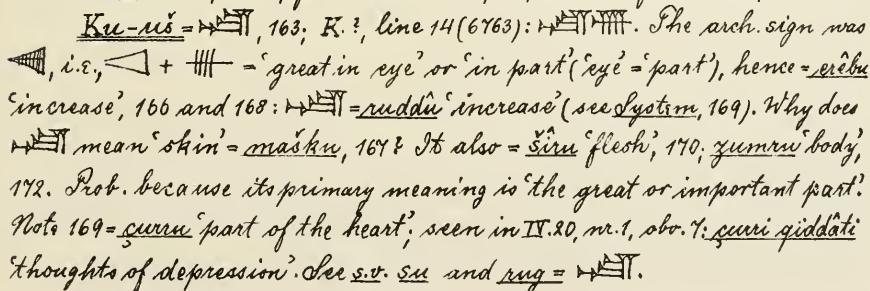 Ku-uš = 𒋢, 163; K. ?, line 14 (6763): 𒋢𒀀. The arch. sign was
i.e., + = 'great in eye' or 'in part' ('eye' = 'part'), hence = erêbu
'increase', 166 and 168: 𒋢 = ruddû 'increase' (see System, 169). Why does
𒋢 mean 'skin' = mašku, 167? It also = šîru 'flesh', 170; zumru 'body',
172. Prob. because its primary meaning is 'the great or important part'.
Note 169 = çurru 'part of the heart'; seen in IV. 20, nr. 1, obv. 7: çurri qiddâti
'thoughts of depression'. See s.v. su and rug = 𒋢.